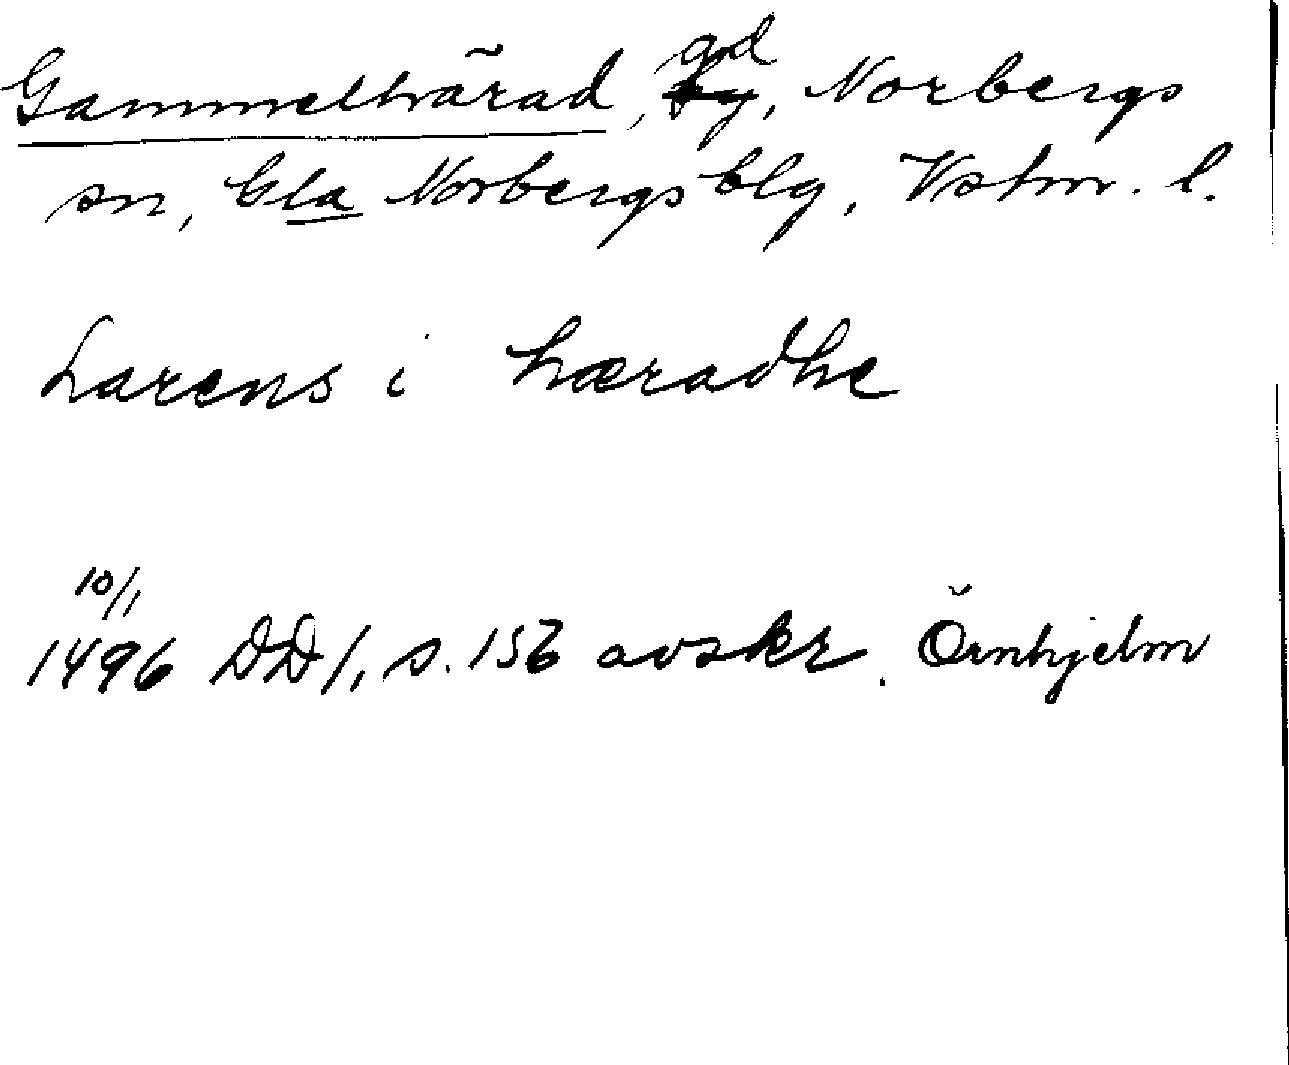 Gammelhärad, gd, Norbergs
sn, Gla Norbergs blg, Vstm. l.
Larens i hæradhe
10/1
1496 DD 1, s. 156 avskr. Örnhjelm